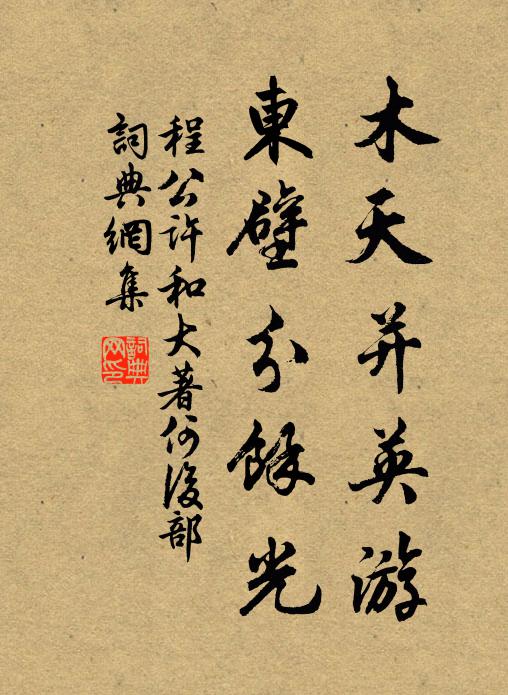 木天并英游
東壁分餘光
程公許和大著何後部
詞典網集
詞典網印